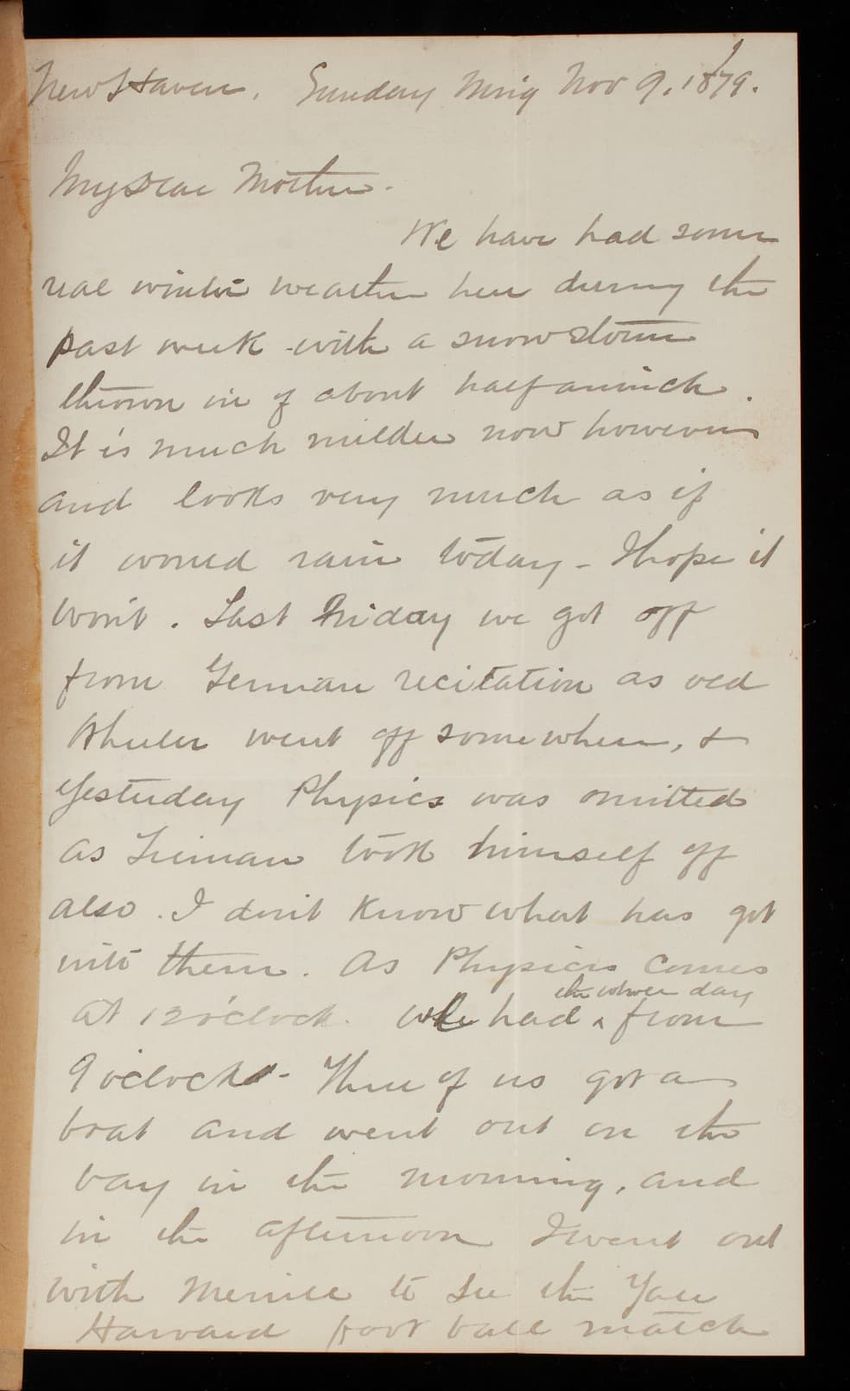 New Haven. Sunday Mng Nov 9. 1879.
My Dear Mother.
We have had some
real winter weather here during the
past week with a snow storm
thrown in of about half an inch.
It is much milder now however
and looks very much as if
it would rain today - I hope it
won't. Last Friday we got off
from German recitation as old
Wheeler went off somewhere, &
yesterday Physics was omitted
as Lyman took himself off
also. I don't know what has got
into them. As Physics comes
at 12 o'clock. we had ^ the whole day from
9 o'clock - Three of us got a
boat and went out on the
bay in the morning, and
in the afternoon I went out
with Merrill to see the Yale
Harvard foot ball match